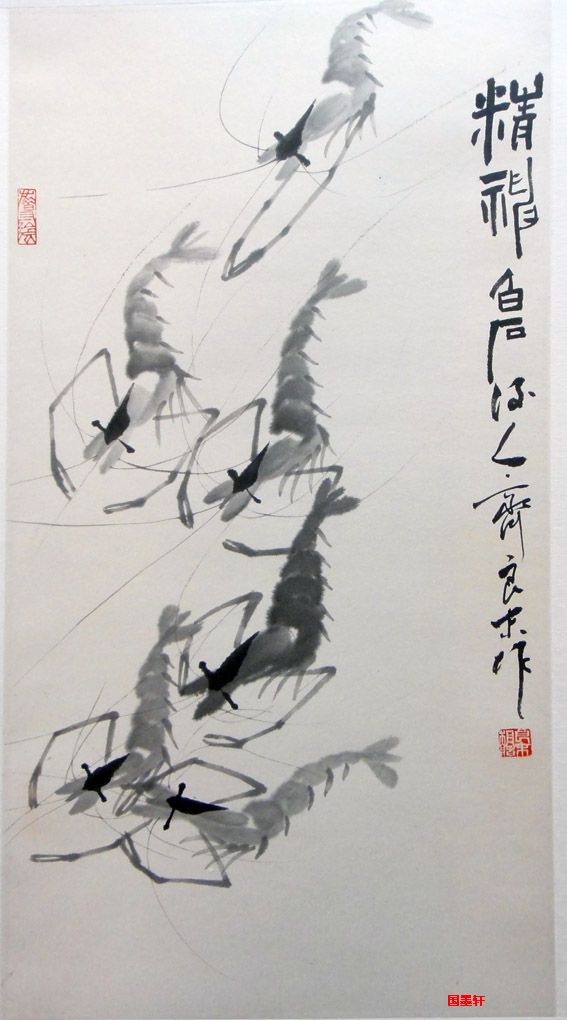 精神 白石後人齊良末作
国墨轩